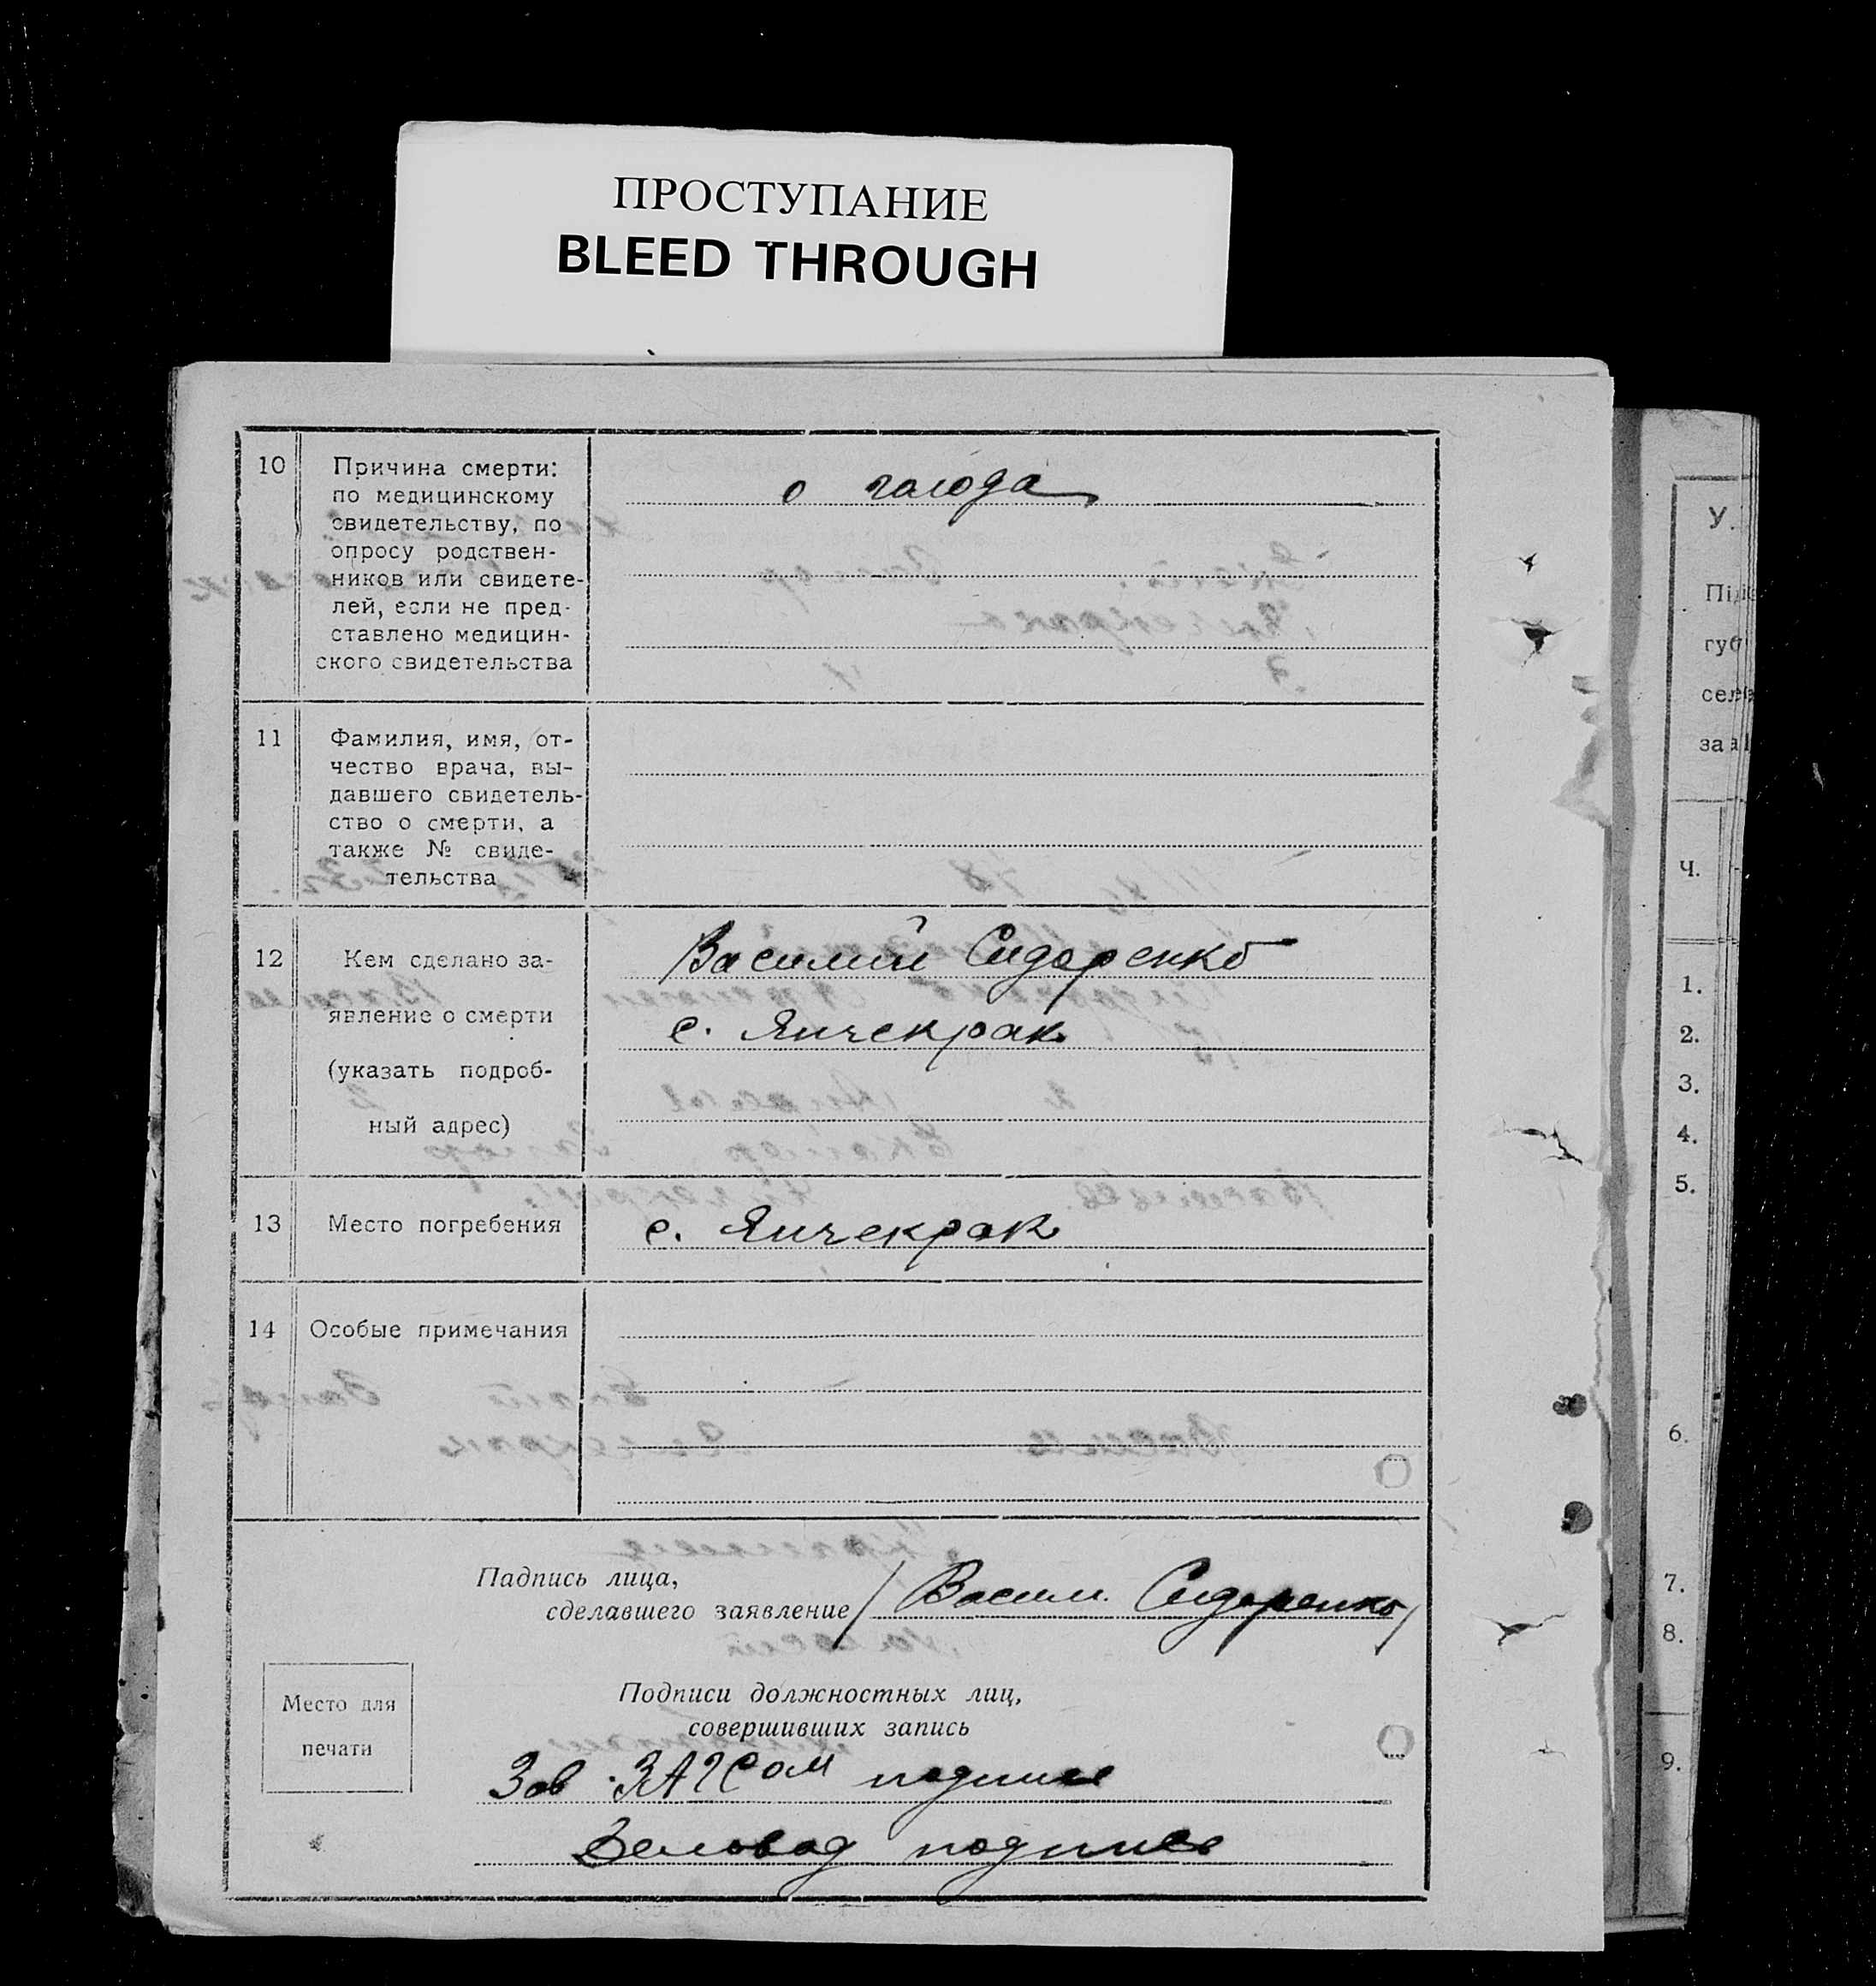 ПРОСТУПАНИЕ
BLEED THROUGH
10
Причина смерти:
по медицинскому
свидетельству, по
опросу родствен-
ников или свидете-
лей, если не пред-
ставлено медицин-
ского свидетельства
о голода
11
Фамилия, имя, от-
чество врача, вы-
давшего свидетель-
ство о смерти, а
также № свиде-
тельства
12
Кем сделано за-
явление о смерти
(указать подроб-
ный адрес)
Василий Сидоренко
с. Янчекрак
13
Место погребения
с. Янчекрак
14
Особые примечания
Падпись лица,
сделавшего заявление / Васил. Сидоренко /
Место для
печати
Подписи должностных лиц,
совершивших запись
Зав. ЗАГСом подпись
Деловод подпись
У.
Під
губ
сел
за
Ч.
1.
2.
3.
4.
5.
6.
7.
8.
9.